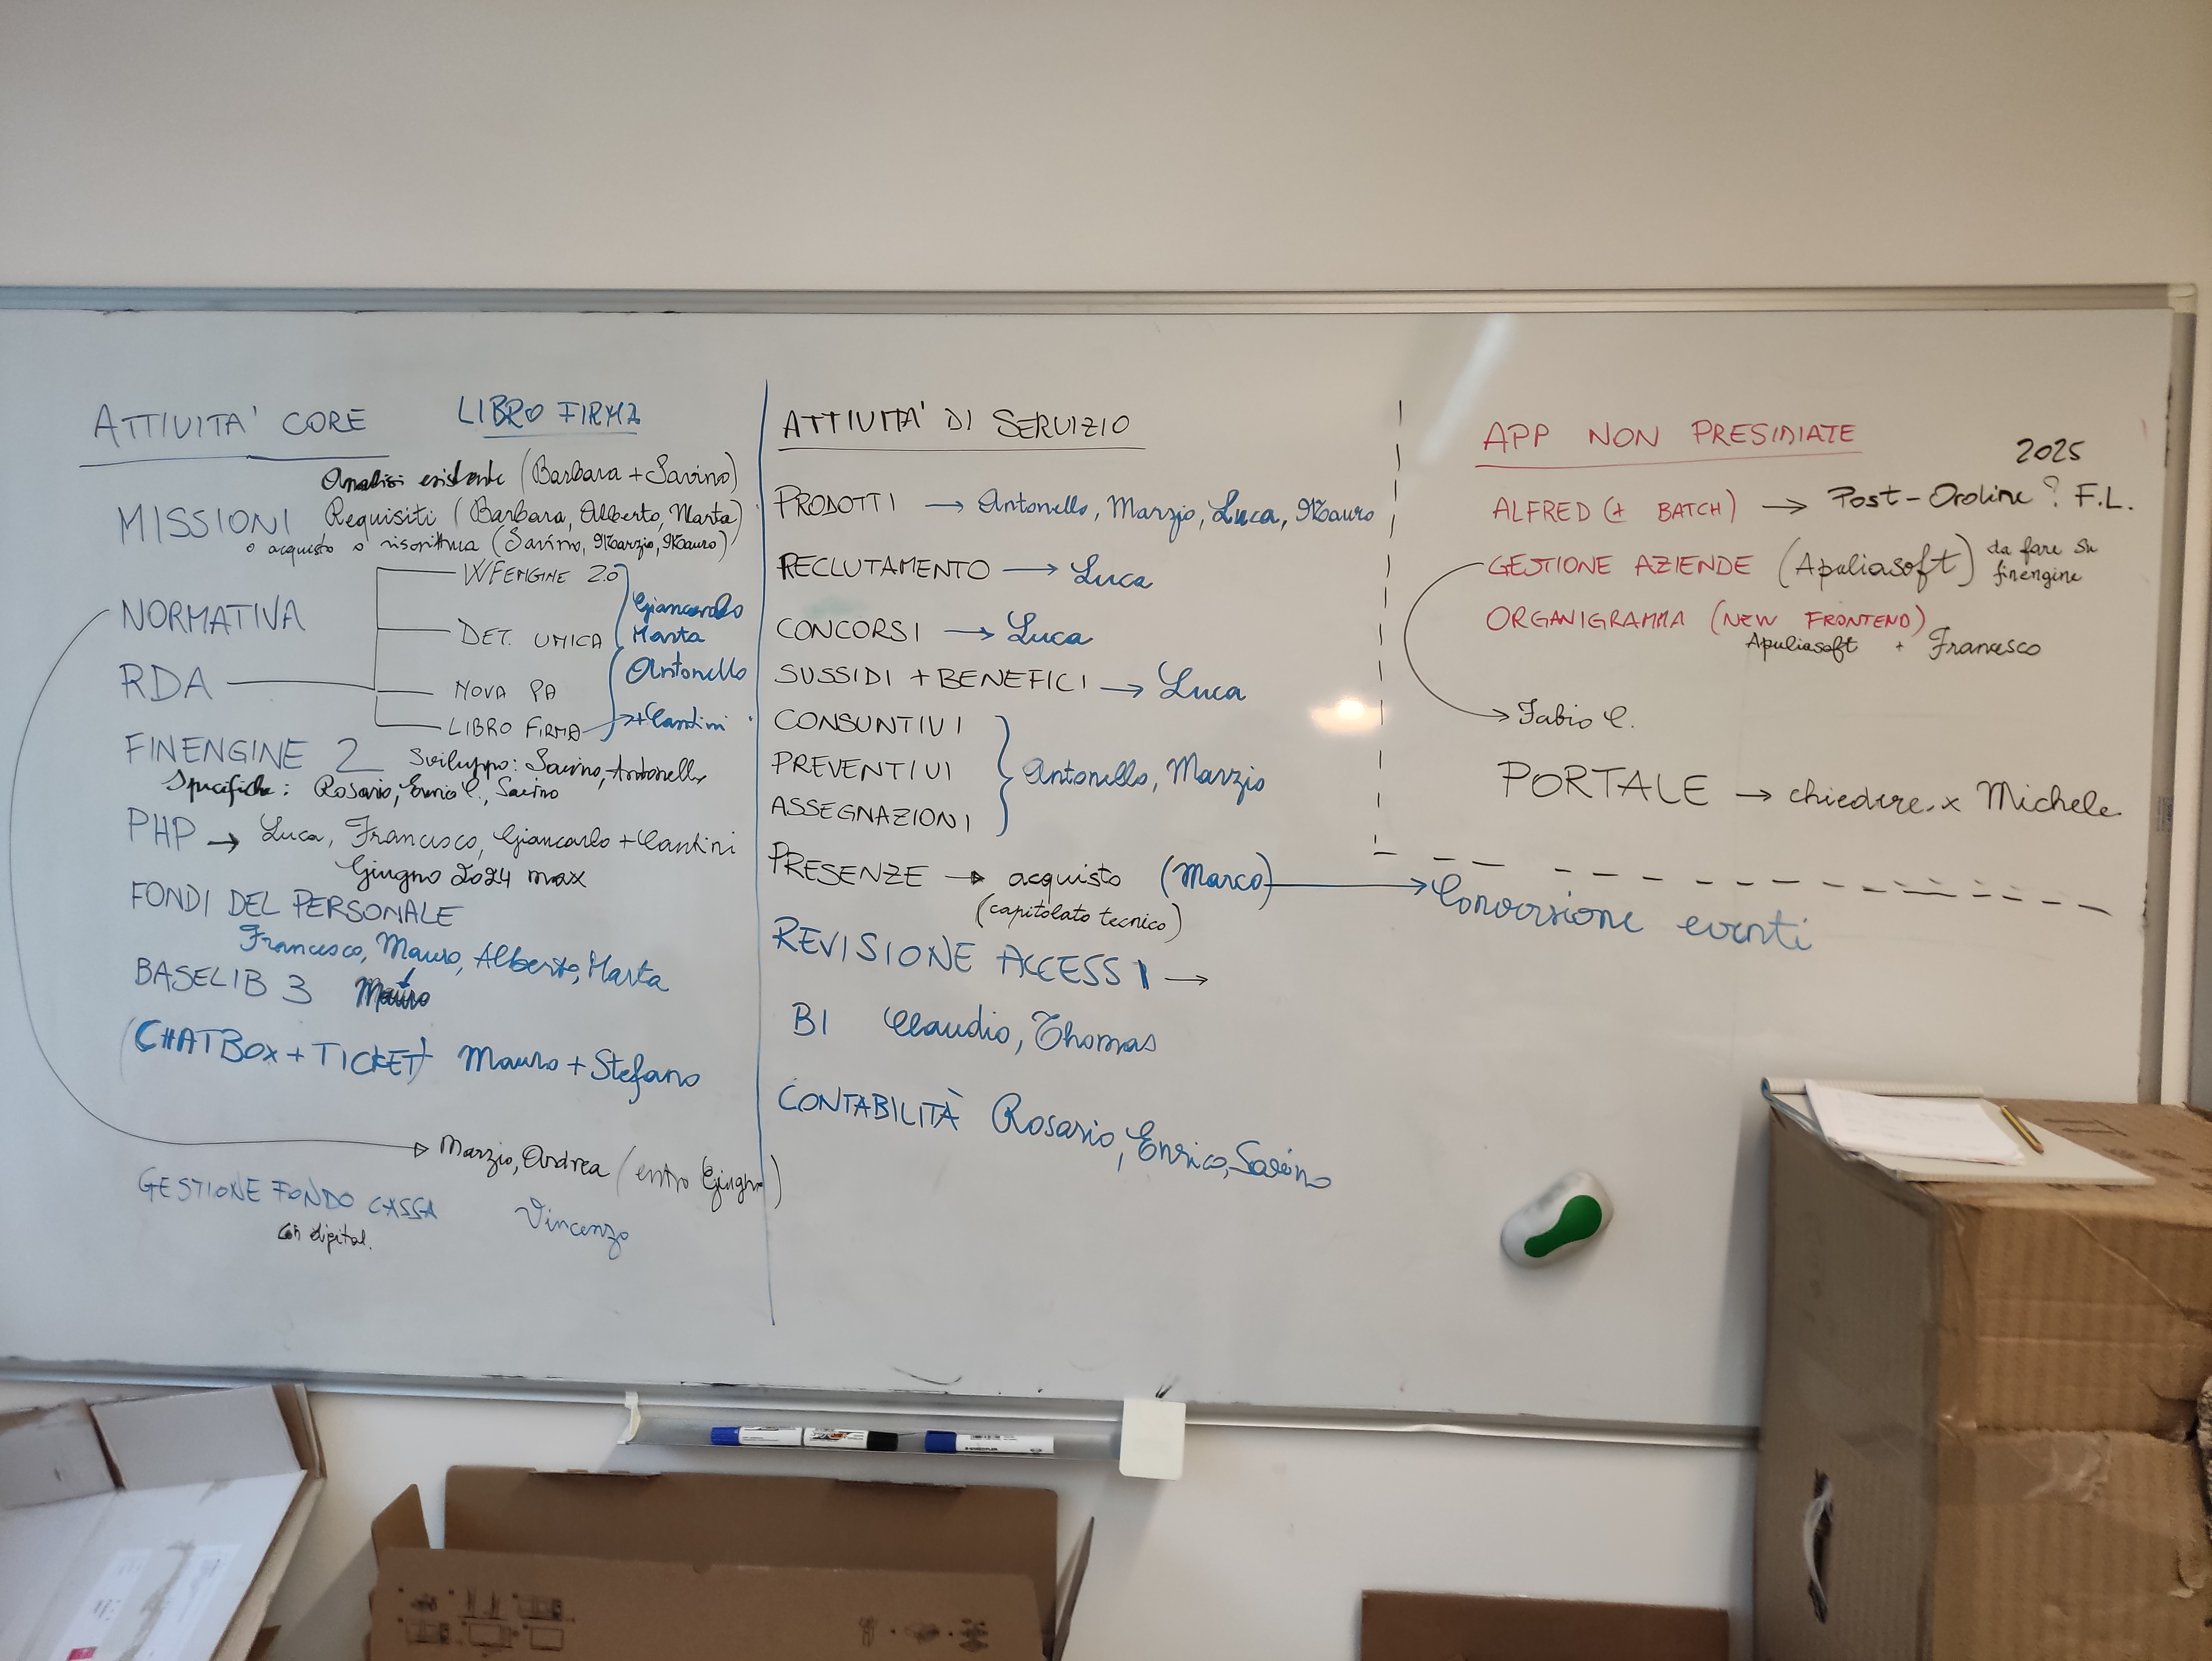 ATTIVITA' CORE LIBRO FIRMA
Analisi esistente (Barbara + Savino)
MISSIONI Requisiti (Barbara, Alberto, Marta)
o acquisto o riscrittura (Savino, Marzio, Mauro)
WFENGINE 2.0
NORMATIVA
Giancarlo
DET. UNICA Marta
RDA
Antonello
NOVA PA
LIBRO FIRMA → + Cantini
FINENGINE 2 Sviluppo: Savino, Antonello
Specifiche: Rosario, Enrico C., Savino
PHP → Luca, Francesco, Giancarlo + Cantini
Giugno 2024 max
FONDI DEL PERSONALE
Francesco, Mauro, Alberto, Marta
BASELIB 3 Mauro
(CHATBOX + TICKET) Mauro + Stefano
Marzio, Andrea (entro Giugno)
GESTIONE FONDO CASSA Vincenzo
con digital.
ATTIVITA' DI SERVIZIO
PRODOTTI → Antonello, Marzio, Luca, Mauro
RECLUTAMENTO → Luca
CONCORSI → Luca
SUSSIDI + BENEFICI → Luca
CONSUNTIVI
PREVENTIVI } Antonello, Marzio
ASSEGNAZIONI
PRESENZE → acquisto (Marco) → Conversione eventi
(capitolato tecnico)
REVISIONE ACCESSI →
BI Claudio, Thomas
CONTABILITÀ Rosario, Enrico, Savino
APP NON PRESIDIATE
2025
ALFRED (+ BATCH) → Post-Ordine? F.L.
GESTIONE AZIENDE (Apuliasoft) da fare su
finengine
ORGANIGRAMMA (NEW FRONTEND)
Apuliasoft + Francesco
→ Fabio C.
PORTALE → chiedere x Michele